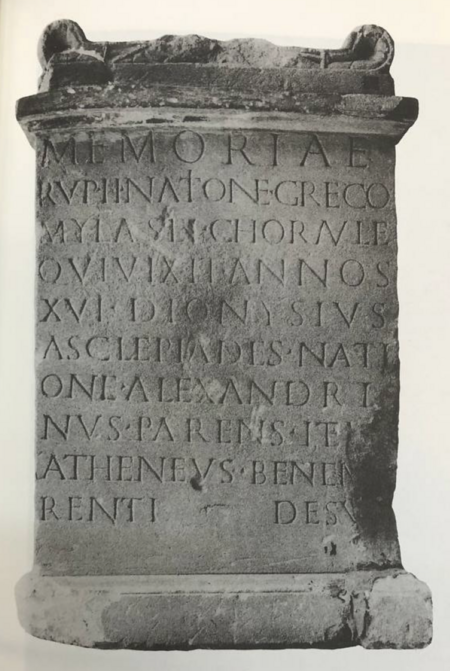 MEMORIAE
RVPHI·NATIONE·GRECO
MYLASEI·CHORAVLE
QVI VIXIT ANNOS
XVI·DIONYSIVS
ASCLEPIADES·NATI
ONE·ALEXANDRI
NVS·PARENS·IT
ATHENEVS·BENE
RENTI DE SV